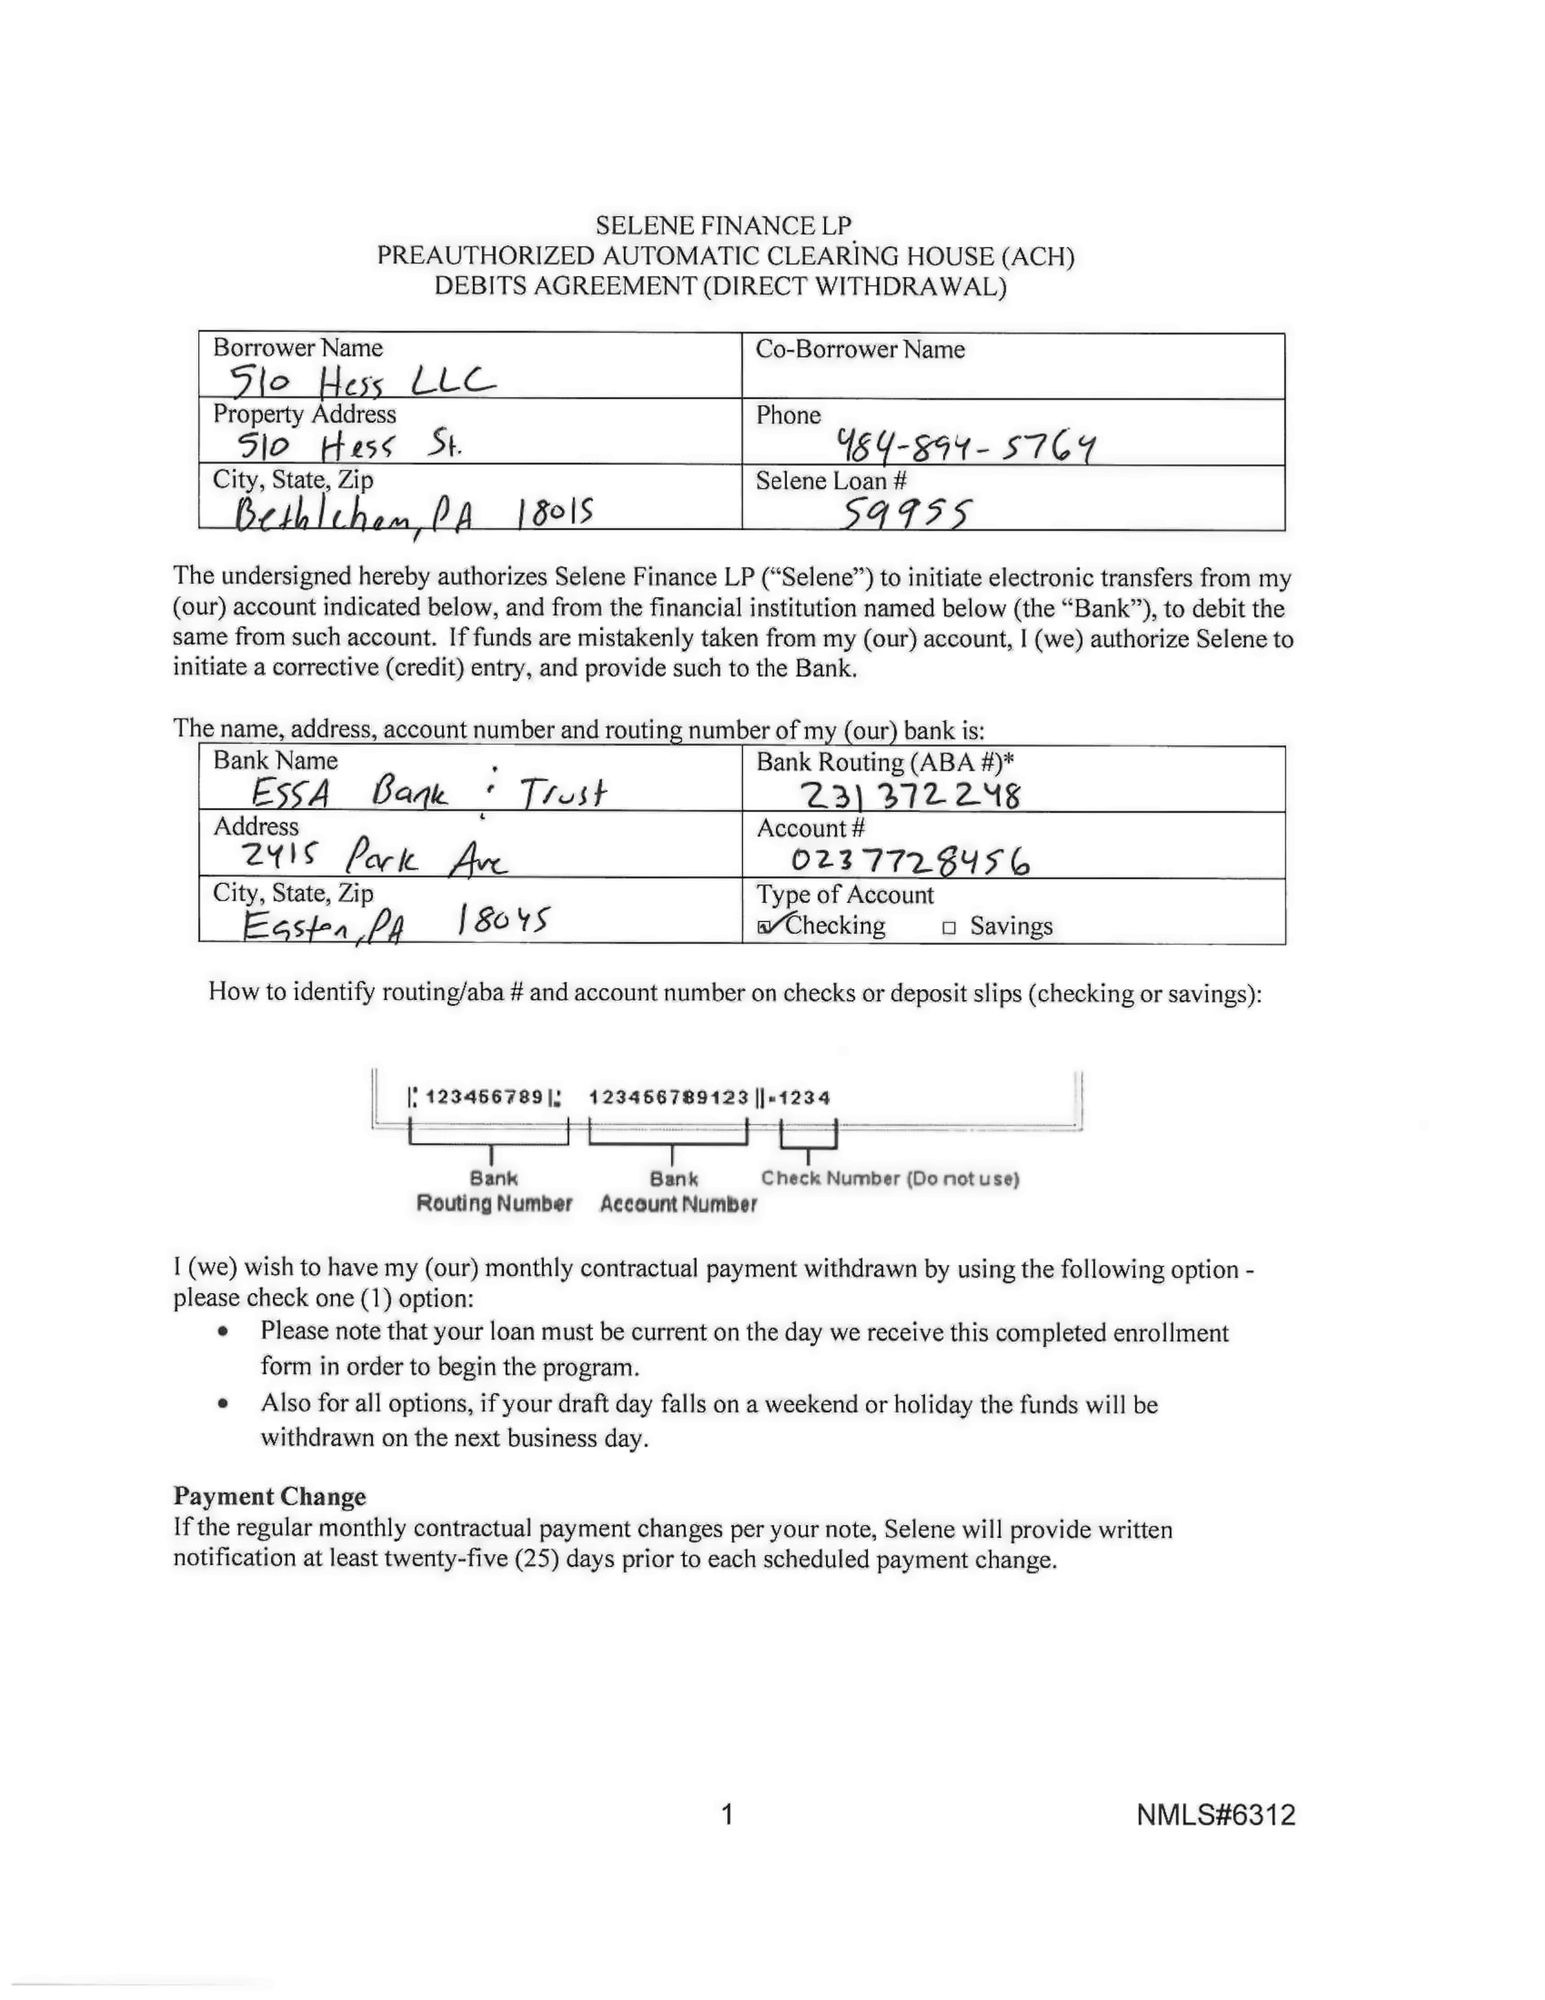 SELENE FINANCE LP
PREAUTHORIZED AUTOMATIC CLEARING HOUSE (ACH)
DEBITS AGREEMENT (DIRECT WITHDRAWAL)
Borrower Name
510 Hess LLC
Co-Borrower Name
Property Address
510 Hess St.
Phone
484-894-5764
City, State, Zip
Bethlehem, PA 18015
Selene Loan #
59955
The undersigned hereby authorizes Selene Finance LP (“Selene”) to initiate electronic transfers from my
(our) account indicated below, and from the financial institution named below (the “Bank”), to debit the
same from such account. If funds are mistakenly taken from my (our) account, I (we) authorize Selene to
initiate a corrective (credit) entry, and provide such to the Bank.
The name, address, account number and routing number of my (our) bank is:
Bank Name
ESSA Bank & Trust
Bank Routing (ABA #)*
231372248
Address
2415 Park Ave
Account #
0237728456
City, State, Zip
Easton, PA 18045
Type of Account
☑ Checking ☐ Savings
How to identify routing/aba # and account number on checks or deposit slips (checking or savings):
|: 123456789 |: 123456789123 ||-1234
Bank Routing Number
Bank Account Number
Check Number (Do not use)
I (we) wish to have my (our) monthly contractual payment withdrawn by using the following option -
please check one (1) option:
• Please note that your loan must be current on the day we receive this completed enrollment
form in order to begin the program.
• Also for all options, if your draft day falls on a weekend or holiday the funds will be
withdrawn on the next business day.
Payment Change
If the regular monthly contractual payment changes per your note, Selene will provide written
notification at least twenty-five (25) days prior to each scheduled payment change.
1
NMLS#6312